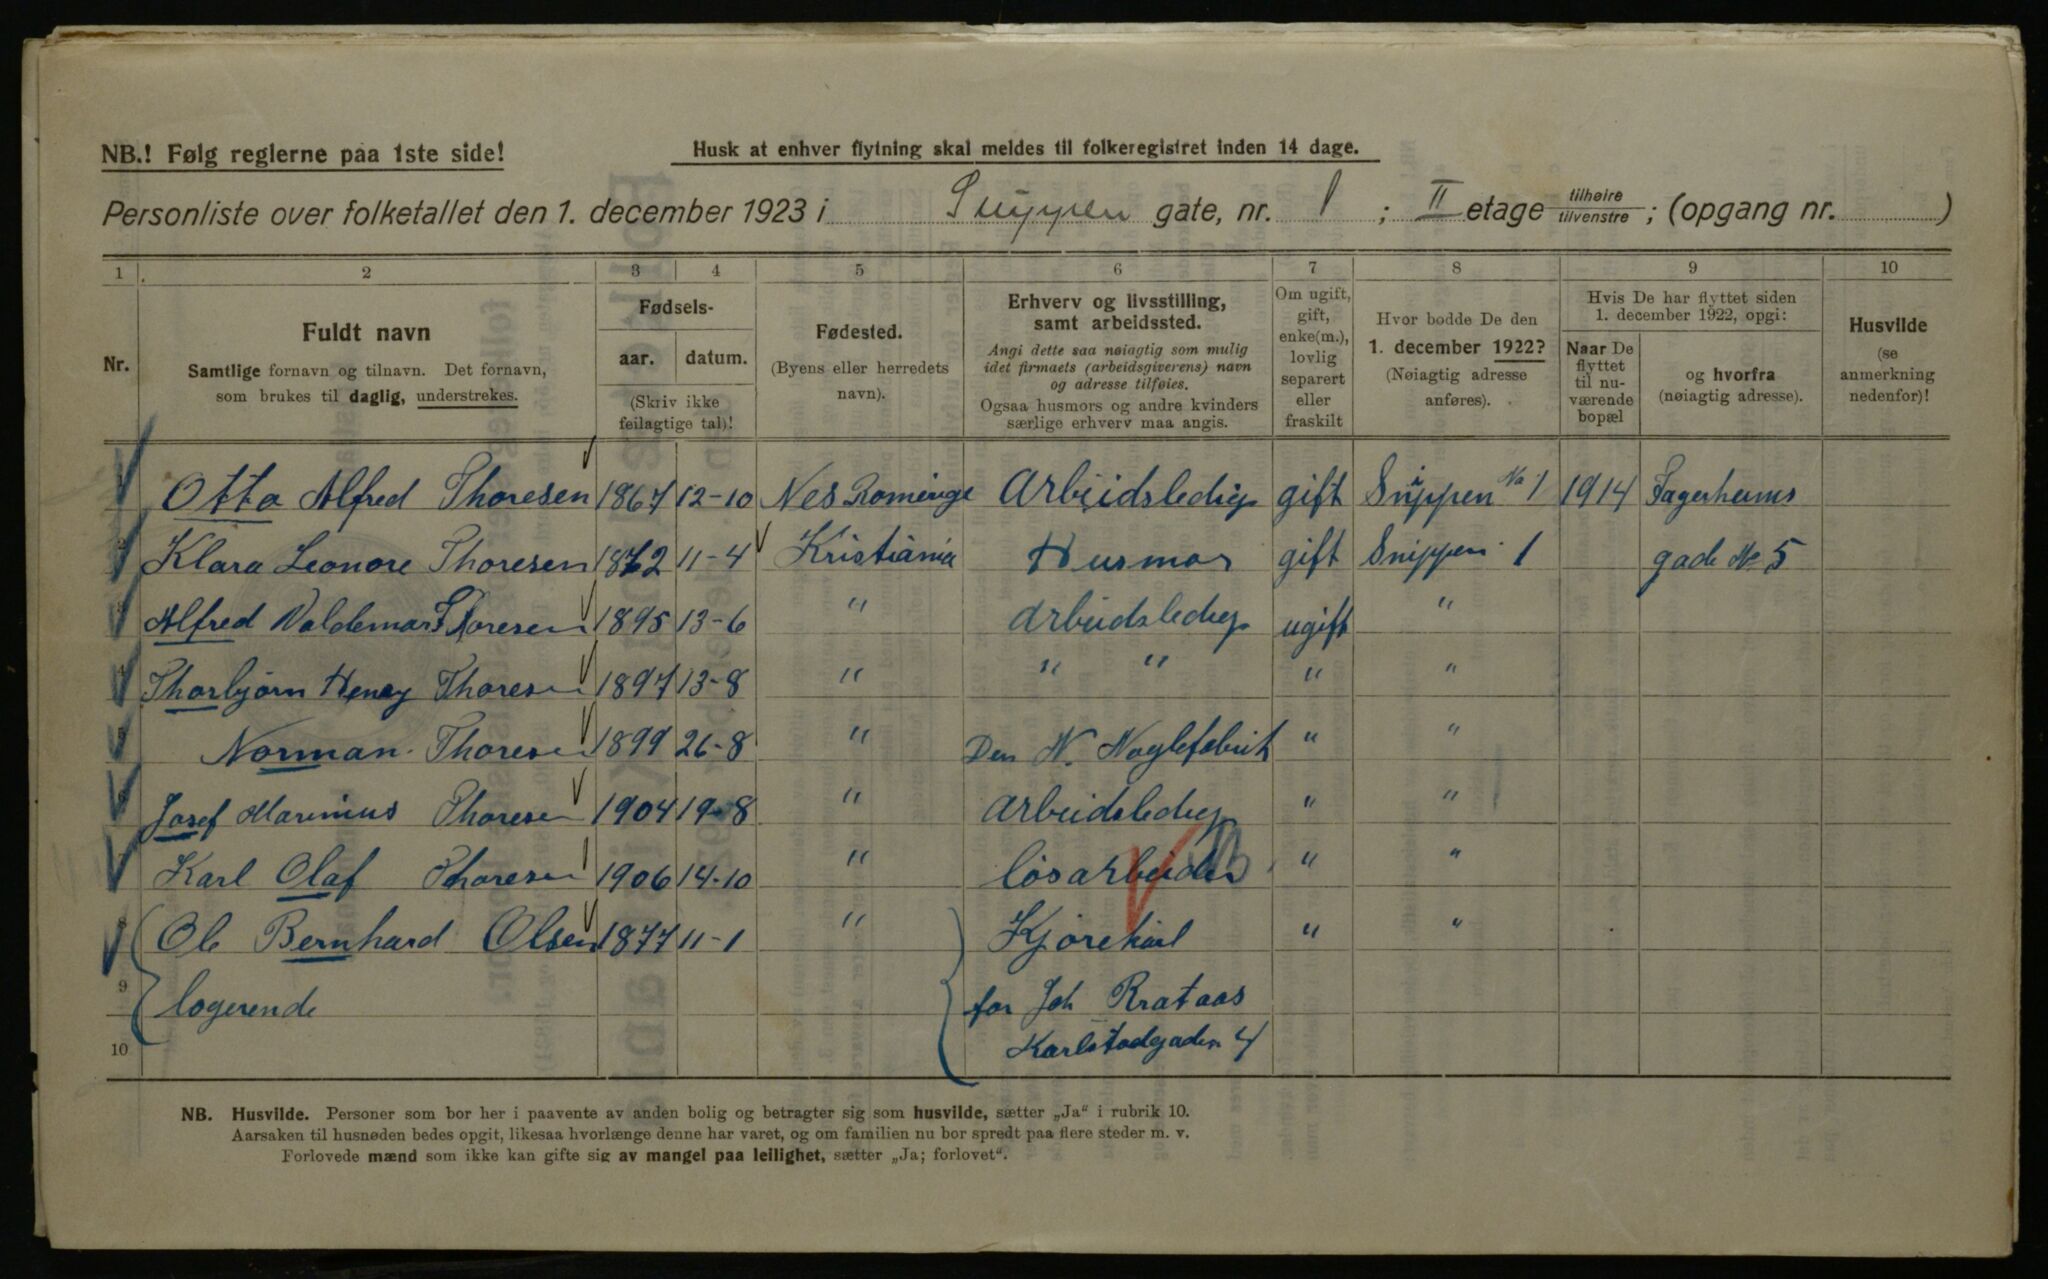 NB.! Følg reglerne paa 1ste side!
Husk at enhver flytning skal meldes til folkeregistret inden 14 dage.
Personliste over folketallet den 1. december 1923 i Snippen gate, nr. 1 ; II etage tilhøire tilvenstre ; (opgang nr. )
1 2 3 4 5 6 7 8 9 10
Nr.
Fuldt navn
Samtlige fornavn og tilnavn. Det fornavn,
som brukes til daglig, understrekes.
Fødsels-
aar. datum.
(Skriv ikke
feilagtige tal)!
Fødested.
(Byens eller herredets
navn).
Erhverv og livsstilling,
samt arbeidssted.
Angi dette saa nøiagtig som mulig
idet firmaets (arbeidsgiverens) navn
og adresse tilføies.
Ogsaa husmors og andre kvinders
særlige erhverv maa angis.
Om ugift,
gift,
enke(m.),
lovlig
separert
eller
fraskilt
Hvor bodde De den
1. december 1922?
(Nøiagtig adresse
anføres).
Hvis De har flyttet siden
1. december 1922, opgi:
Naar De
flyttet
til nu-
værende
bopæl
og hvorfra
(nøiagtig adresse).
Husvilde
(se
anmerkning
nedenfor)!
Otto Alfred Thoresen 1867 12-10 Nes Romerige Arbeidsledig gift Snippen No 1 1914 Fagerheims
Klara Leonore Thoresen 1872 11-4 Kristiania Husmor gift Snippen 1 gade No 5
Alfred Valdemar Thoresen 1895 13-6 " Arbeidsledig ugift "
Thorbjørn Henry Thoresen 1897 13-8 " " " " "
Norman Thoresen 1899 26-8 " Den N. Naglefabrik " "
Josef Marinius Thoresen 1904 19-8 " Arbeidsledig " "
Karl Olaf Thoresen 1906 14-10 " løsarbeider " "
8 Ole Bernhard Olsen 1877 11-1 " Kjørekarl " "
9 logerende for Joh Brataas
10 Karlstadgaden 4
NB. Husvilde. Personer som bor her i paavente av anden bolig og betragter sig som husvilde, sætter „Ja“ i rubrik 10.
Aarsaken til husnøden bedes opgit, likesaa hvorlænge denne har varet, og om familien nu bor spredt paa flere steder m. v.
Forlovede mænd som ikke kan gifte sig av mangel paa leilighet, sætter „Ja; forlovet“.